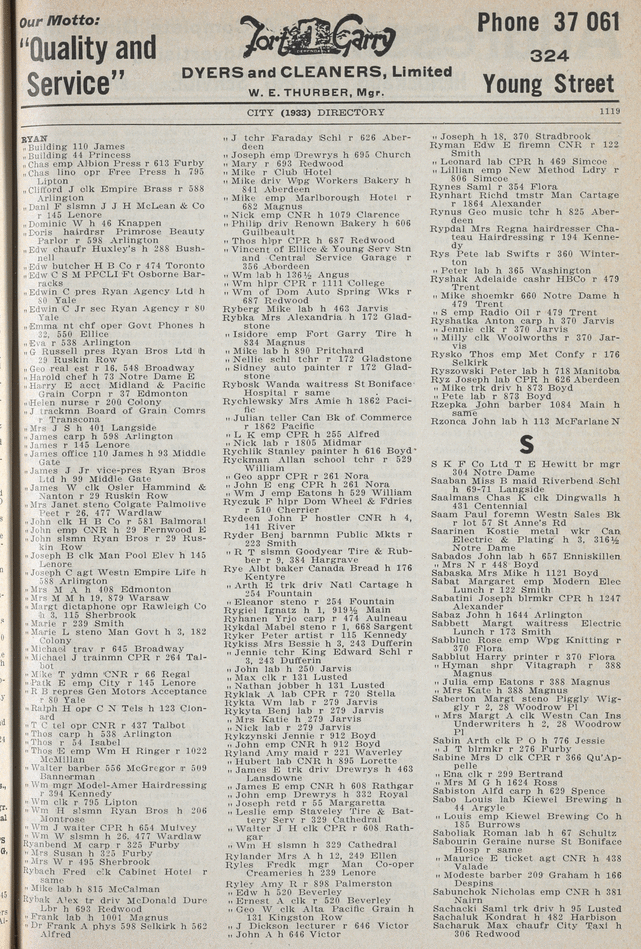 Our Motto:
"Quality and
Service"
Fort Garry
DYERS and CLEANERS, Limited
W. E. THURBER, Mgr.
Phone 37 061
324
Young Street
CITY (1933) DIRECTORY
1119
RYAN
„ Building 110 James
„ Building 44 Princess
„ Chas emp Albion Press r 613 Furby
„ Chas lino opr Free Press h 795
Lipton
„ Clifford J clk Empire Brass r 588
Arlington
„ Danl F slsmn J J H McLean & Co
r 145 Lenore
„ Dominic W h 46 Knappen
„ Doris hairdsr Primrose Beauty
Parlor r 598 Arlington
„ Edw chaufr Huxley's h 288 Bush-
nell
„ Edw butcher H B Co r 474 Toronto
„ Edw C S M PPCLI Ft Osborne Bar-
racks
„ Edwin C pres Ryan Agency Ltd h
80 Yale
„ Edwin C Jr sec Ryan Agency r 80
Yale
„ Emma nt chf oper Govt Phones h
22, 550 Ellice
„ Eva r 538 Arlington
„ G Russell pres Ryan Bros Ltd h
29 Ruskin Row
„ Geo real est r 16, 548 Broadway
„ Harold chef h 73 Notre Dame E
„ Harry E acct Midland & Pacific
Grain Corpn r 37 Edmonton
„ Helen nurse r 200 Colony
„ J trackmn Board of Grain Comrs
r Transcona
„ Mrs J S h 401 Langside
„ James carp h 598 Arlington
„ James r 145 Lenore
„ James office 110 James h 93 Middle
Gate
„ James J Jr vice-pres Ryan Bros
Ltd h 99 Middle Gate
„ James W clk Osler Hammond &
Nanton r 29 Ruskin Row
„ Mrs Janet steno Colgate Palmolive
Peet r 26, 477 Wardlaw
„ John clk H B Co r 581 Balmoral
„ John emp CNR h 29 Fernwood E
„ John slsmn Ryan Bros r 29 Rus-
kin Row
„ Joseph B clk Man Pool Elev h 145
Lenore
„ Joseph C agt Westn Empire Life h
588 Arlington
„ Mrs M A h 408 Edmonton
„ Mrs M M h 19, 879 Warsaw
„ Margt dictaphone opr Rawleigh Co
h 3, 115 Sherbrook
„ Marie r 239 Smith
„ Marie L steno Man Govt h 3, 182
Colony
„ Michael trav r 645 Broadway
„ Michael J trainmn CPR r 264 Tal-
bot
„ Mike T ydmn CNR r 66 Regal
„ Patk E emp City r 145 Lenore
„ R B repres Gen Motors Acceptance
r 80 Yale
„ Ralph H opr C N Tels h 123 Clon-
ard
„ T C tel opr CNR r 437 Talbot
„ Thos carp h 538 Arlington
„ Thos r 54 Isabel
„ Thos E emp Wm H Ringer r 1022
McMillan
„ Walter barber 556 McGregor r 509
Bannerman
„ Wm mgr Model-Amer Hairdressing
r 394 Kennedy
„ Wm clk r 795 Lipton
„ Wm H slsmn Ryan Bros h 206
Montrose
„ Wm J waiter CPR h 654 Mulvey
„ Wm W slsmn h 26, 477 Wardlaw
Ryanbend M carp r 325 Furby
„ Mrs Susan h 325 Furby
„ Mrs W r 495 Sherbrook
Rybach Fred clk Cabinet Hotel r
same
„ Mike lab h 815 McCalman
Rybak Alex tr driv McDonald Dure
Lbr h 693 Redwood
„ Frank lab h 1001 Magnus
„ Dr Frank A phys 598 Selkirk h 562
Alfred
„ J tchr Faraday Schl r 626 Aber-
deen
„ Joseph emp Drewrys h 695 Church
„ Mary r 693 Redwood
„ Mike r Club Hotel
„ Mike driv Wpg Workers Bakery h
841 Aberdeen
„ Mike emp Marlborough Hotel r
682 Magnus
„ Nick emp CNR h 1079 Clarence
„ Philip driv Renown Bakery h 606
Guilbeault
„ Thos hlpr CPR h 687 Redwood
„ Vincent of Ellice & Young Serv Stn
and Central Service Garage r
356 Aberdeen
„ Wm lab h 136½ Angus
„ Wm hlpr CPR r 1111 College
„ Wm of Dom Auto Spring Wks r
687 Redwood
Ryberg Mike lab h 463 Jarvis
Rybka Mrs Alexandria h 172 Glad-
stone
„ Isidore emp Fort Garry Tire h
834 Magnus
„ Mike lab h 890 Pritchard
„ Nellie schl tchr r 172 Gladstone
„ Sidney auto painter r 172 Glad-
stone
Rybosk Wanda waitress St Boniface
Hospital r same
Rychlewsky Mrs Amie h 1862 Paci-
fic
„ Julian teller Can Bk of Commerce
r 1862 Pacific
„ L K emp CPR h 255 Alfred
„ Nick lab r 1805 Midmar
Rychlik Stanley painter h 616 Boyd
Ryckman Allan school tchr r 529
William
„ Geo appr CPR r 261 Nora
„ John E eng CPR h 261 Nora
„ Wm J emp Eatons h 529 William
Ryczuk P hlpr Dom Wheel & Fdries
r 510 Cherrier
Rydeen John P hostler CNR h 4,
141 River
Ryder Benj barnmn Public Mkts r
223 Smith
„ R T slsmn Goodyear Tire & Rub-
ber r 9, 384 Hargrave
Rye Albt baker Canada Bread h 176
Kentyre
„ Arth E trk driv Natl Cartage h
254 Fountain
„ Eleanor steno r 254 Fountain
Rygiel Ignatz h 1, 919½ Main
Ryhanen Yrjo carp r 474 Aulneau
Rykdal Mabel steno r 1, 668 Sargent
Ryker Peter artist r 115 Kennedy
Rykiss Mrs Bessie h 3, 243 Dufferin
„ Jennie tchr King Edward Schl r
3, 243 Dufferin
„ John lab h 250 Jarvis
„ Max clk r 131 Lusted
„ Nathan jobber h 131 Lusted
Ryklak A lab CPR r 720 Stella
Rykta Wm lab r 279 Jarvis
Rykyta Benj lab r 279 Jarvis
„ Mrs Katie h 279 Jarvis
„ Nick lab r 279 Jarvis
Rykzynski Jennie r 912 Boyd
„ John emp CNR h 912 Boyd
Ryland Amy maid r 221 Waverley
„ Hubert lab CNR h 895 Lorette
„ James E trk driv Drewrys h 463
Lansdowne
„ James E emp CNR h 608 Rathgar
„ John emp Drewrys h 332 Royal
„ Joseph retd r 55 Margaretta
„ Leslie emp Staveley Tire & Bat-
tery Serv r 329 Cathedral
„ Walter J H clk CPR r 608 Rath-
gar
„ Wm H slsmn h 329 Cathedral
Rylander Mrs A h 12, 249 Ellen
Ryles Fredk mgr Man Co-oper
Creameries h 239 Lenore
Ryley Amy R r 898 Palmerston
„ Edw h 520 Beverley
„ Ernest A clk r 520 Beverley
„ Geo W clk Alta Pacific Grain h
131 Kingston Row
„ J Dickson lecturer r 646 Victor
„ John A h 646 Victor
„ Joseph h 18, 370 Stradbrook
Ryman Edw E firemn CNR r 122
Smith
„ Leonard lab CPR h 469 Simcoe
„ Lillian emp New Method Ldry r
806 Simcoe
Rynes Saml r 354 Flora
Rynhart Richd tmstr Man Cartage
r 1864 Alexander
Rynus Geo music tchr h 825 Aber-
deen
Rypdal Mrs Regna hairdresser Cha-
teau Hairdressing r 194 Kenne-
dy
Rys Pete lab Swifts r 360 Winter-
ton
„ Peter lab h 365 Washington
Ryshak Adelaide cashr HBCo r 479
Trent
„ Mike shoemkr 660 Notre Dame h
479 Trent
„ S emp Radio Oil r 479 Trent
Ryshatka Anton carp h 370 Jarvis
„ Jennie clk r 370 Jarvis
„ Milly clk Woolworths r 370 Jar-
vis
Rysko Thos emp Met Confy r 176
Selkirk
Ryszowski Peter lab h 718 Manitoba
Ryz Joseph lab CPR h 626 Aberdeen
„ Mike trk driv h 873 Boyd
„ Pete lab r 873 Boyd
Rzepka John barber 1084 Main h
same
Rzonca John lab h 113 McFarlane N
S
S K F Co Ltd T E Hewitt br mgr
304 Notre Dame
Saaban Miss B maid Riverbend Schl
h 69-71 Langside
Saalmans Chas K clk Dingwalls h
431 Centennial
Saam Paul Foremn Westn Sales Bk
r lot 57 St Anne's Rd
Saarinen Kostie metal wkr Can
Electric & Plating h 3, 316½
Notre Dame
Sabados John lab h 657 Enniskillen
„ Mrs N r 448 Boyd
Sabaska Mrs Mike h 1121 Boyd
Sabat Margaret emp Modern Elec
Lunch r 122 Smith
Sabatini Joseph blrmkr CPR h 1247
Alexander
Sabaz John h 1644 Arlington
Sabbett Margt waitress Electric
Lunch r 173 Smith
Sabbluc Rose emp Wpg Knitting r
370 Flora
Sabblut Harry printer r 370 Flora
„ Hyman shpr Vitagraph r 388
Magnus
„ Julia emp Eatons r 388 Magnus
„ Mrs Kate h 388 Magnus
Saberton Margt steno Piggly Wig-
gly r 2, 28 Woodrow Pl
„ Mrs Margt A clk Westn Can Ins
Underwriters h 2, 28 Woodrow
Pl
Sabin Arth clk P O h 776 Jessie
„ J T blrmkr r 276 Furby
Sabine Mrs D clk CPR r 366 Qu'Ap-
pelle
„ Ena clk r 299 Bertrand
„ Mrs M G h 1624 Ross
Sabiston Alfd carp h 629 Spence
Sabo Louis lab Kiewel Brewing h
44 Argyle
„ Louis emp Kiewel Brewing Co h
136 Burrows
Saboliak Roman lab h 67 Schultz
Sabourin Geraine nurse St Boniface
Hosp r same
„ Maurice E ticket agt CNR h 438
Valade
„ Modeste barber 209 Graham h 166
Despins
Sabunchok Nicholas emp CNR h 381
Nairn
Sachacki Saml trk driv h 95 Lusted
Sachaluk Kondrat h 482 Harbison
Sacharuk Max chaufr City Taxi h
306 Redwood